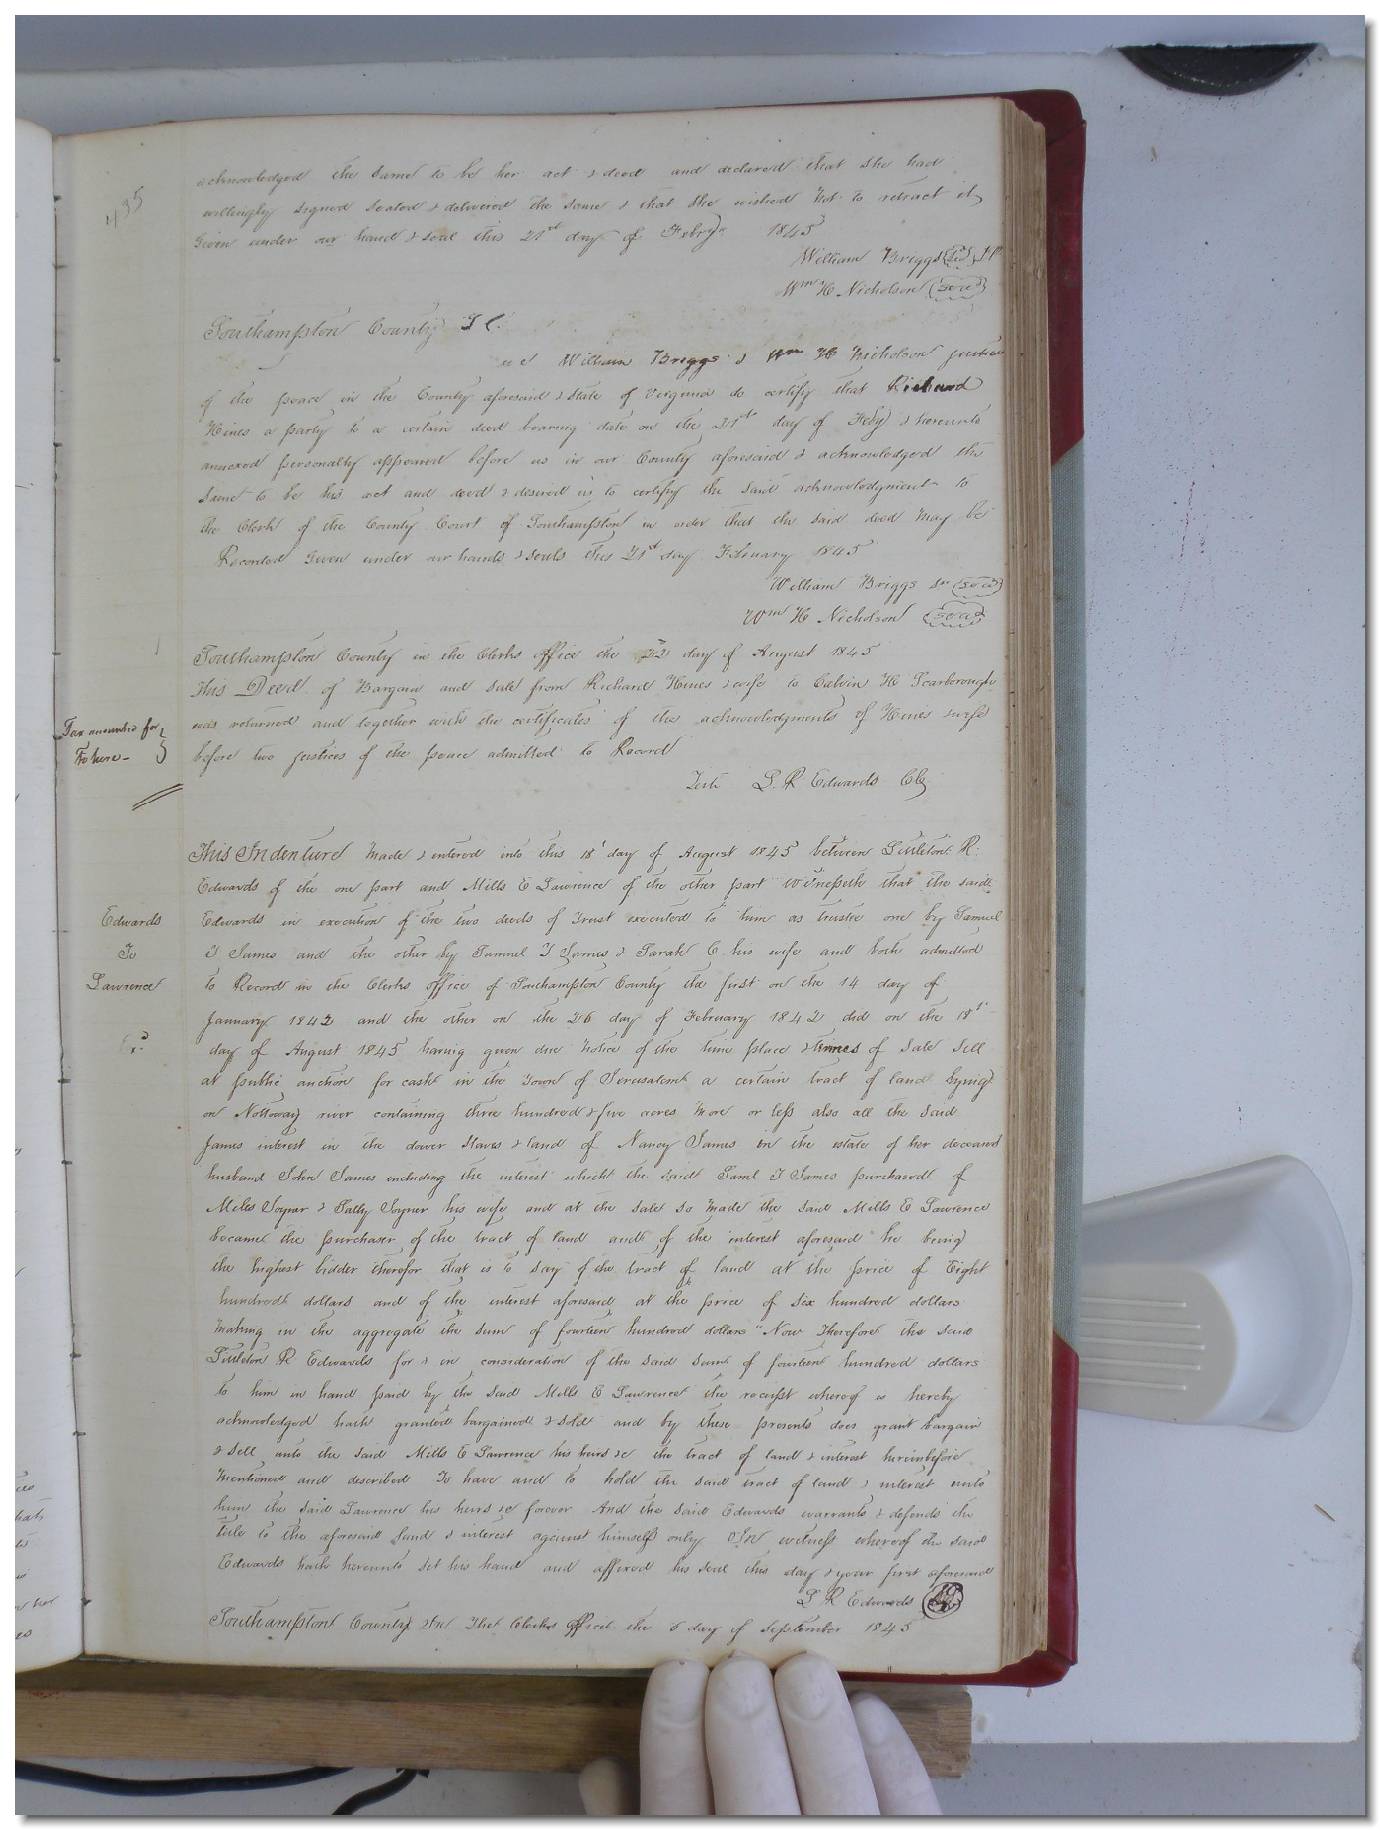 435
acknowledged the same to be her act & deed and declared that she had
willingly signed sealed & delivered the same & that she wished not to retract it
Given under our hand & seal this 21st day of Febry 1845
William Briggs
Wm H Nicholson (Seal)
Southampton County
William Briggs & Wm H Nicholson justices
of the peace in the County aforesaid & State of Virginia do certify that Richard
Hines a party to a certain deed bearing date on the 21st day of Feby & hereunto
annexed personally appeared before us in our County aforesaid & acknowledged the
same to be his act and deed & desired us to certify the said acknowledgment to
the Clerk of the County Court of Southampton in order that the said deed may be
Recorded Given under our hands & seals this 21st day February 1845
William Briggs Sr (Seal)
Wm H Nicholson (Seal)
Southampton County in the Clerks office the 22 day of August 1845
This Deed of Bargain and Sale from Richard Hines & wife to Calvin H Scarborough
was returned and together with the certificates of the acknowledgments of Hines & wife
before two justices of the peace admitted to Record
Tax accounted for
Teste L. R Edwards Clk
This Indenture made & entered into this 18' day of August 1845 between Littleton R.
Edwards of the one part and Mills E Lawrence of the other part witnesseth that the said
Edwards
Edwards in execution of the two deeds of trust executed to him as trustee one by Samuel
To
J James and the other by Samuel J James & Sarah C his wife and both admitted
Lawrence
to Record in the Clerks office of Southampton County the first on the 14 day of
January 1842 and the other on the 26 day of February 1842 did on the 18t
day of August 1845 having given due notice of the time place & times of sale sell
at public auction for cash in the Town of Jerusalem a certain tract of land lying
on Nottoway river containing three hundred & five acres more or less also all the said
James interest in the dower slaves & land of Nancy James in the estate of her deceased
husband John James including the interest which the said Saml J James purchased of
Miles Joyner & Sally Joyner his wife and at the sale so made the said Mills E Lawrence
became the purchaser of the tract of land and of the interest aforesaid he being
the highest bidder therefor that is to say of the tract of land at the price of Eight
hundred dollars and of the interest aforesaid at the price of six hundred dollars
making in the aggregate the sum of fourteen hundred dollars Now Therefore the said
Littleton R Edwards for & in consideration of the said sum of fourteen hundred dollars
to him in hand paid by the said Mills E Lawrence the receipt whereof is hereby
acknowledged hath granted bargained & sold and by these presents does grant bargain
& sell unto the said Mills E Lawrence his heirs &c the tract of land & interest hereinbefore
mentioned and described To have and to hold the said tract of land & interest unto
him the said Lawrence his heirs &c forever And the said Edwards warrants & defends the
title to the aforesaid land & interest against himself only In witness whereof the said
Edwards hath hereunto set his hand and affixed his seal this day & year first aforesaid
L R Edwards
Southampton County In The Clerks Office the 5 day of September 1845